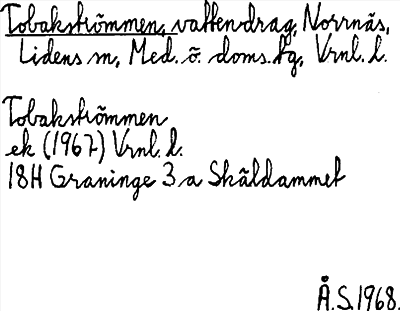 Tobakströmmen, vattendrag, Norrnäs,
Lidens sn, Med. ö. doms.fg, Vrnl. l.
Tobakströmmen
ek (1967) Vrnl. l.
18H Graninge 3 a Skäldammet
Å.S. 1968.